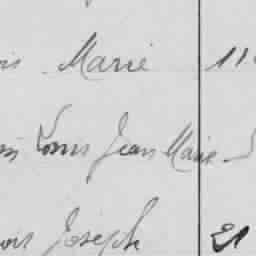 Marie 11
Louis Jean Marie
Joseph 21